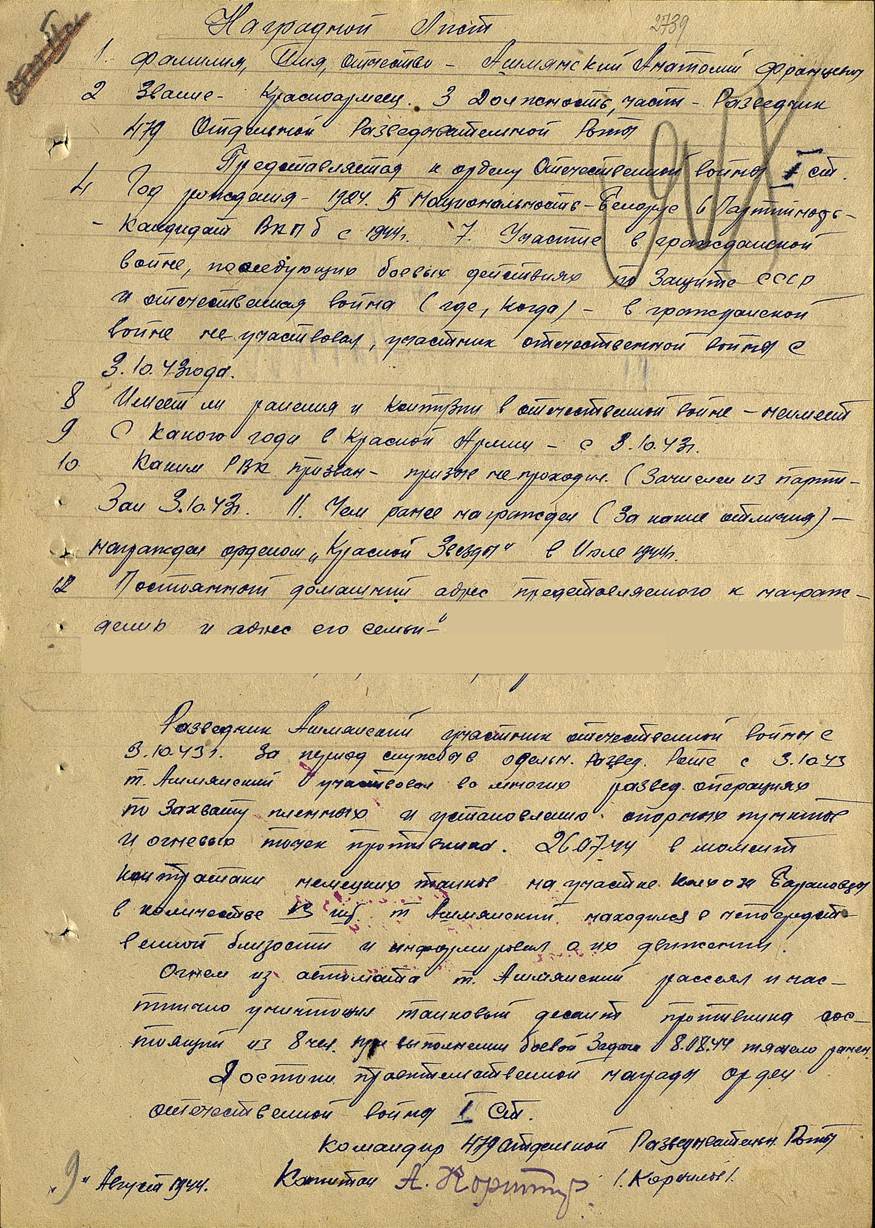 Наградной Лист
2739
1. Фамилия, Имя, Отчество - Ашмянский Анатолий Францевич
2 Звание - Красноармеец. 3 Должность, часть - Разведчик
479 Отдельной Разведывательной Роты
Представляется к ордену Отечественной войны I ст.
4 Год рождения - 1924. 5 Национальность - Белорус 6 Партийность -
- Кандидат ВКПб с 1944г. 7. Участие в гражданской
войне, последующих боевых действиях по защите СССР
и отечественная война (где, когда) - в гражданской
войне не участвовал, участник отечественной войны с
3.10.43года.
8 Имеет ли ранения и контузии в отечественной войне - неимеет
9 С какого года в Красной Армии - с 3.10.43г.
10 Каким РВК призван - призыв не проходил. (Зачислен из парти-
зан 3.10.43г. 11. Чем ранее награжден (за какие отличия) -
награжден орденом „Красной Звезды" в Июле 1944г.
12 Постоянный домашний адрес представляемого к награж-
дению и адрес его семьи -
Разведчик Ашмянский участник отечественной войны с
3.10.43г. За период службы в отдельн. развед. Роте с 3.10.43
т. Ашмянский участвовал во многих развед. операциях
по захвату пленных и установлению опорных пунктов
и огневых точек противника. 26.07.44 в момент
контратаки немецких танков на участке колхоза
в количестве 13 шт. т. Ашмянский находился в непосредст-
венной близости и информировал о их движении.
Огнем из автомата т. Ашмянский рассеял и час-
тично уничтожил танковый десант противника сос-
тоящий из 8 чел. при выполнении боевой задачи 8.08.44 тяжело ранен
Достоин правительственной награды орден
отечественной войны I ст.
Командир 479 Отдельной Разведывательн. Роты
„9" Август 1944. Капитан /Корнилов/.